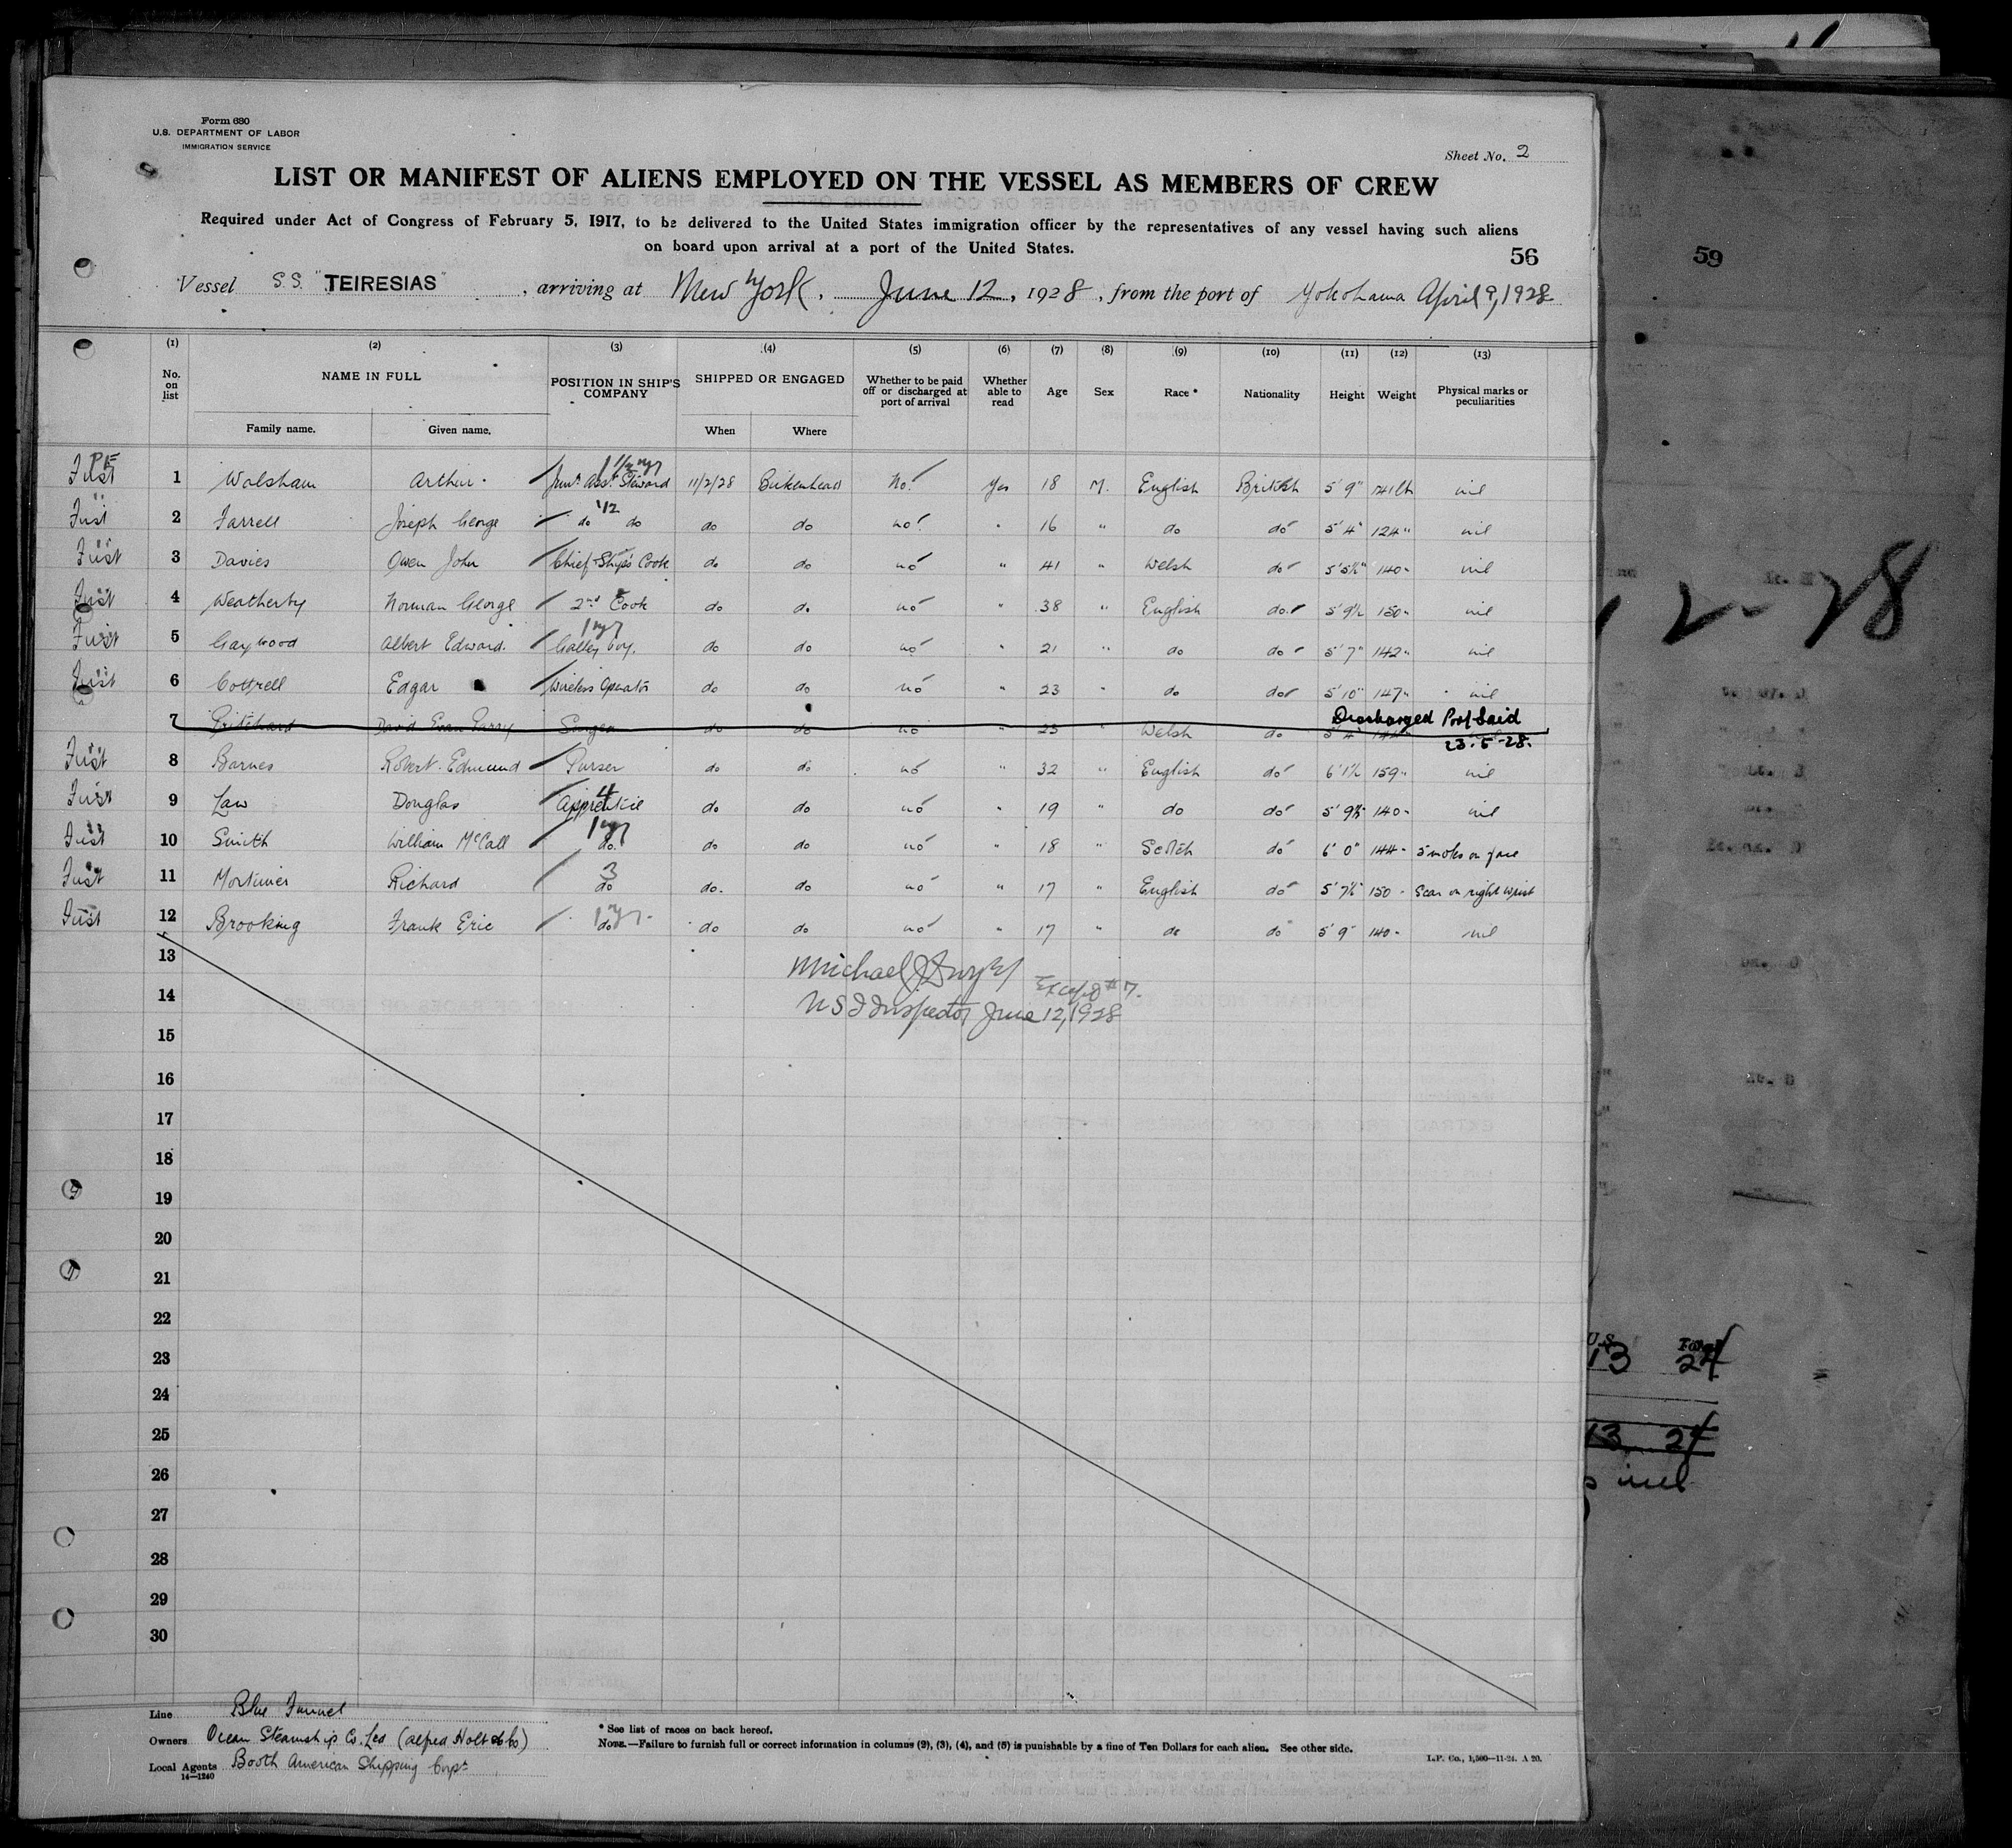 Form 680
U.S. DEPARTMENT OF LABOR
IMMIGRATION SERVICE
Sheet No. 2
LIST OR MANIFEST OF ALIENS EMPLOYED ON THE VESSEL AS MEMBERS OF CREW
Required under Act of Congress of February 5, 1917, to be delivered to the United States immigration officer by the representatives of any vessel having such aliens
on board upon arrival at a port of the United States.
56
59
Vessel S.S. "TEIRESIAS", arriving at New York, June 12, 1928, from the port of Yokohama April 9, 1928
(1) (2) (3) (4) (5) (6) (7) (8) (9) (10) (11) (12) (13)
No. on list NAME IN FULL POSITION IN SHIP'S COMPANY SHIPPED OR ENGAGED Whether to be paid off or discharged at port of arrival Whether able to read Age Sex Race* Nationality Height Weight Physical marks or peculiarities
Family name. Given name. When Where
1 Walsham Arthur Junr Asst Steward 11/2/28 Birkenhead No. Yes 18 M. English British 5' 9" 141 lb nil
2 Farrell Joseph George do do do do no. " 16 " do do 5' 4" 124 " nil
3 Davies Owen John Chief Ship's Cook do do no " 41 " Welsh do 5' 5½" 140 " nil
4 Weatherby Norman George 2nd Cook do do no " 38 " English do 5' 9½ 150 " nil
5 Gaywood Albert Edward. Galley boy. do do no " 21 " do do 5' 7" 142 " nil
6 Cottrell Edgar Wireless Operator do do no " 23 " do do 5' 10" 147 " nil
Discharged Port Said
7 Pritchard David Evan Parry Surgeon do do no " 25 " Welsh do 5' 4"
23-5-28.
8 Barnes Robert Edmund Purser do do no " 32 " English do 6' 1½ 159 " nil
9 Law Douglas Apprentice do do no " 19 " do do 5' 9½ 140 " nil
10 Smith William McCall do. do do no " 18 " Scotch do 6' 0" 144 " 3 moles on face
11 Mortimer Richard do do. do no " 17 " English do 5' 7½" 150 " Scar on right wrist
12 Brooking Frank Eric do do do no " 17 " do do 5' 9" 140 " nil
13
Michael J Dwyer
Except #7.
14
U S I Inspector June 12, 1928
15
16
17
18
19
20
21
22
23
24
25
26
27
28
29
30
Line Blue Funnel
Owners Ocean Steamship Co. Ltd (Alfred Holt & Co)
Local Agents Booth American Shipping Corpn
14—1240
* See list of races on back hereof.
NOTE.—Failure to furnish full or correct information in columns (2), (3), (4), and (5) is punishable by a fine of Ten Dollars for each alien. See other side.
L.P. Co., 1,500—11-24. A 20.
2-28
U.S. Total
13 24
13 24